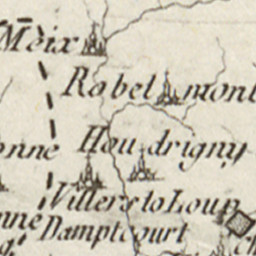 Meix
Robelmont
onne
Houdrigny
Villers to Loup
nne
Damptcourt